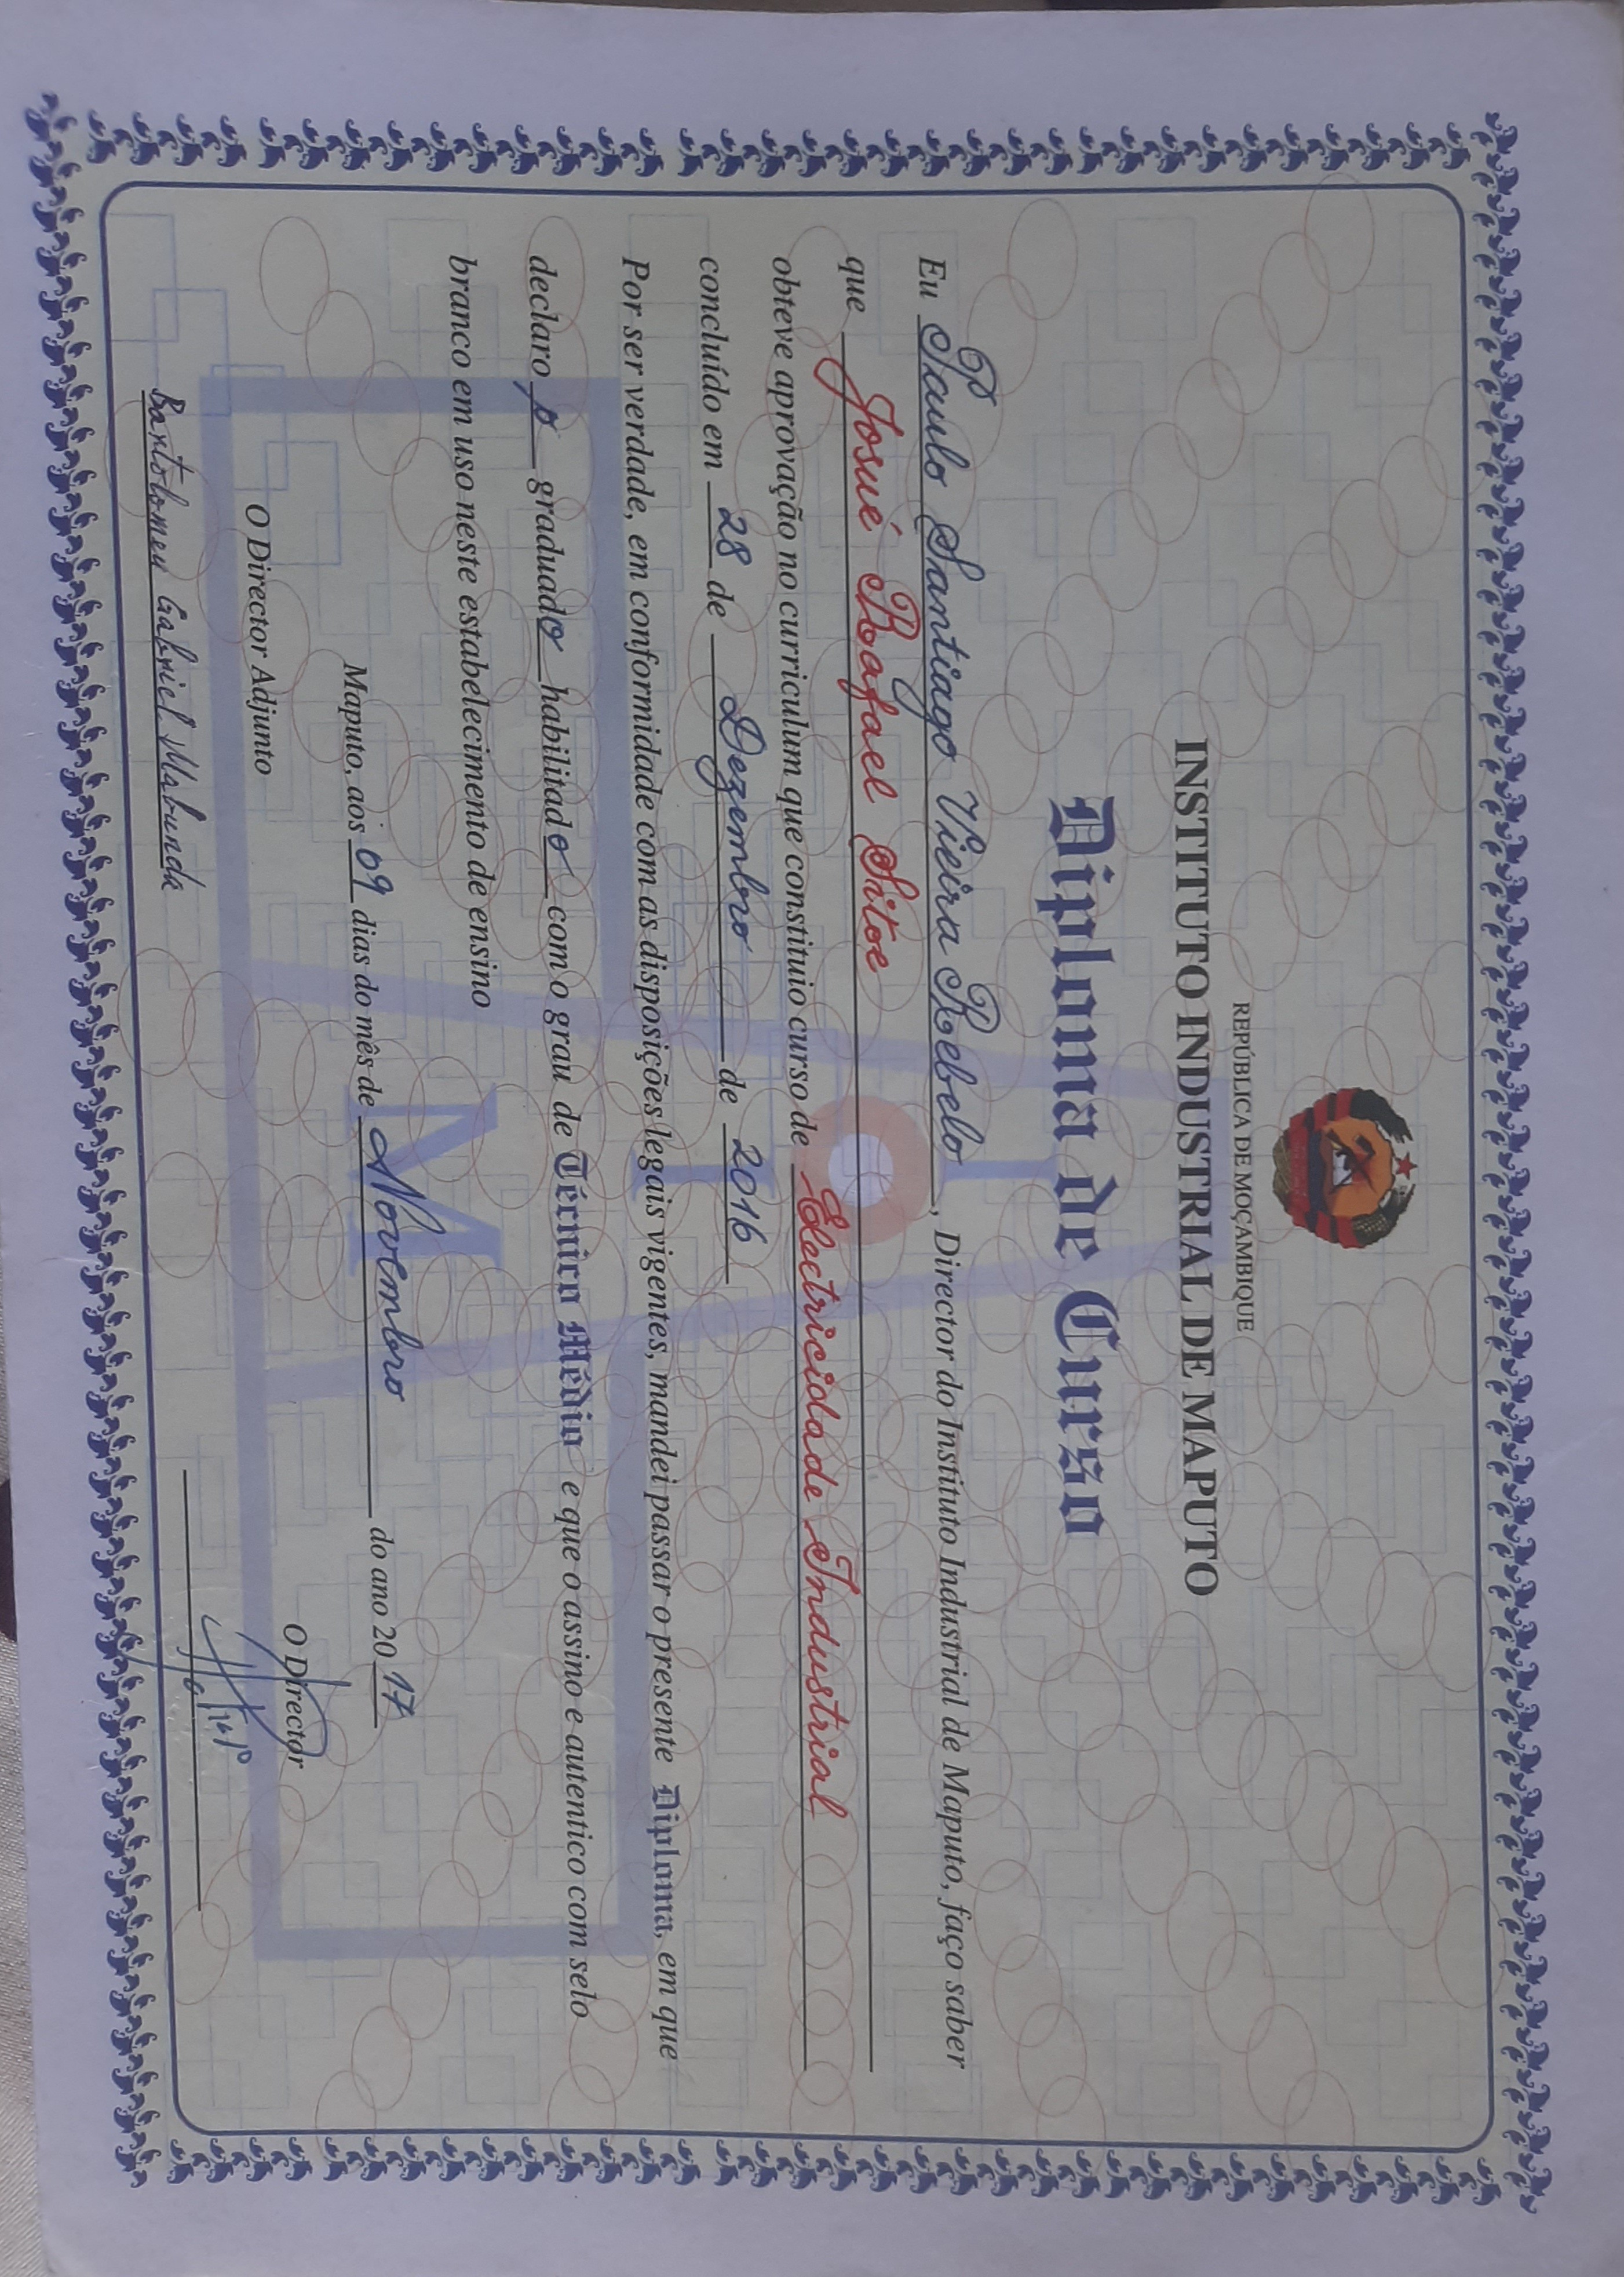 REPÚBLICA DE MOÇAMBIQUE
INSTITUTO INDUSTRIAL DE MAPUTO
Diploma de Curso
Eu Paulo Santiago Vieira Rebelo, Director do Instituto Industrial de Maputo, faço saber
que Josué Rafael Sitoe
obteve aprovação no curriculum que constituio curso de Electricidade Industrial
concluído em 28 de Dezembro de 2016
Por ser verdade, em conformidade com as disposições legais vigentes, mandei passar o presente Diploma, em que
declaro o graduado habilitado com o grau de Técnico Médio e que o assino e autentico com selo
branco em uso neste estabelecimento de ensino
Maputo, aos 09 dias do mês de Novembro do ano 2017
O Director Adjunto
O Director
Bartolomeu Gabriel Mabunda
I
I
M